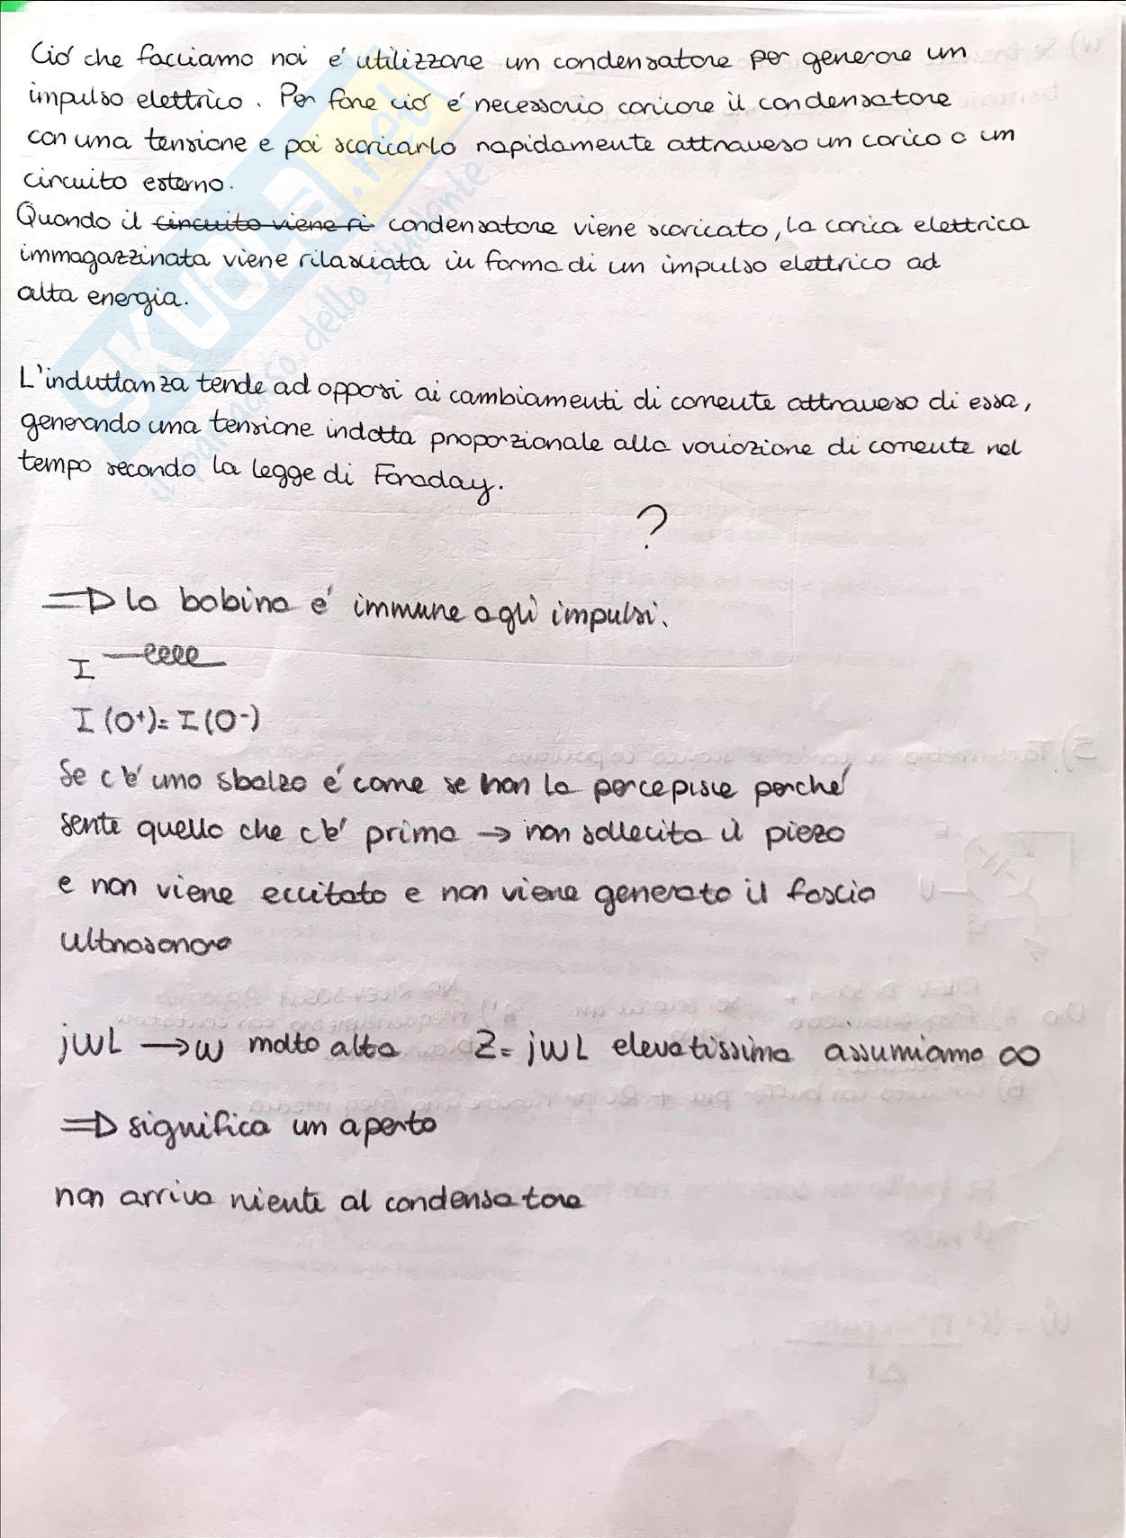 Ciò che facciamo noi é utilizzare un condensatore per generare un
impulso elettrico. Per fare ciò é necessario caricare il condensatore
con una tensione e poi scaricarlo rapidamente attraverso un carico o un
circuito esterno.
Quando il circuito viene ri condensatore viene scaricato, la carica elettrica
immagazzinata viene rilasciata in forma di un impulso elettrico ad
alta energia.
L'induttanza tende ad opporsi ai cambiamenti di corrente attraverso di essa,
generando una tensione indotta proporzionale alla variazione di corrente nel
tempo secondo la legge di Faraday.
?
=D la bobina é immune agli impulsi.
I
I (0+)= I (0-)
Se c'é uno sbalzo é come se non lo percepisce perché
sente quello che c'é prima → non sollecita il piezo
e non viene eccitato e non viene generato il fascio
ultrasonoro
jωL → ω molto alta Z = jωL elevatissima assumiamo ∞
=D significa un aperto
non arriva niente al condensatore
SKUOLA.net
il paradiso dello studente